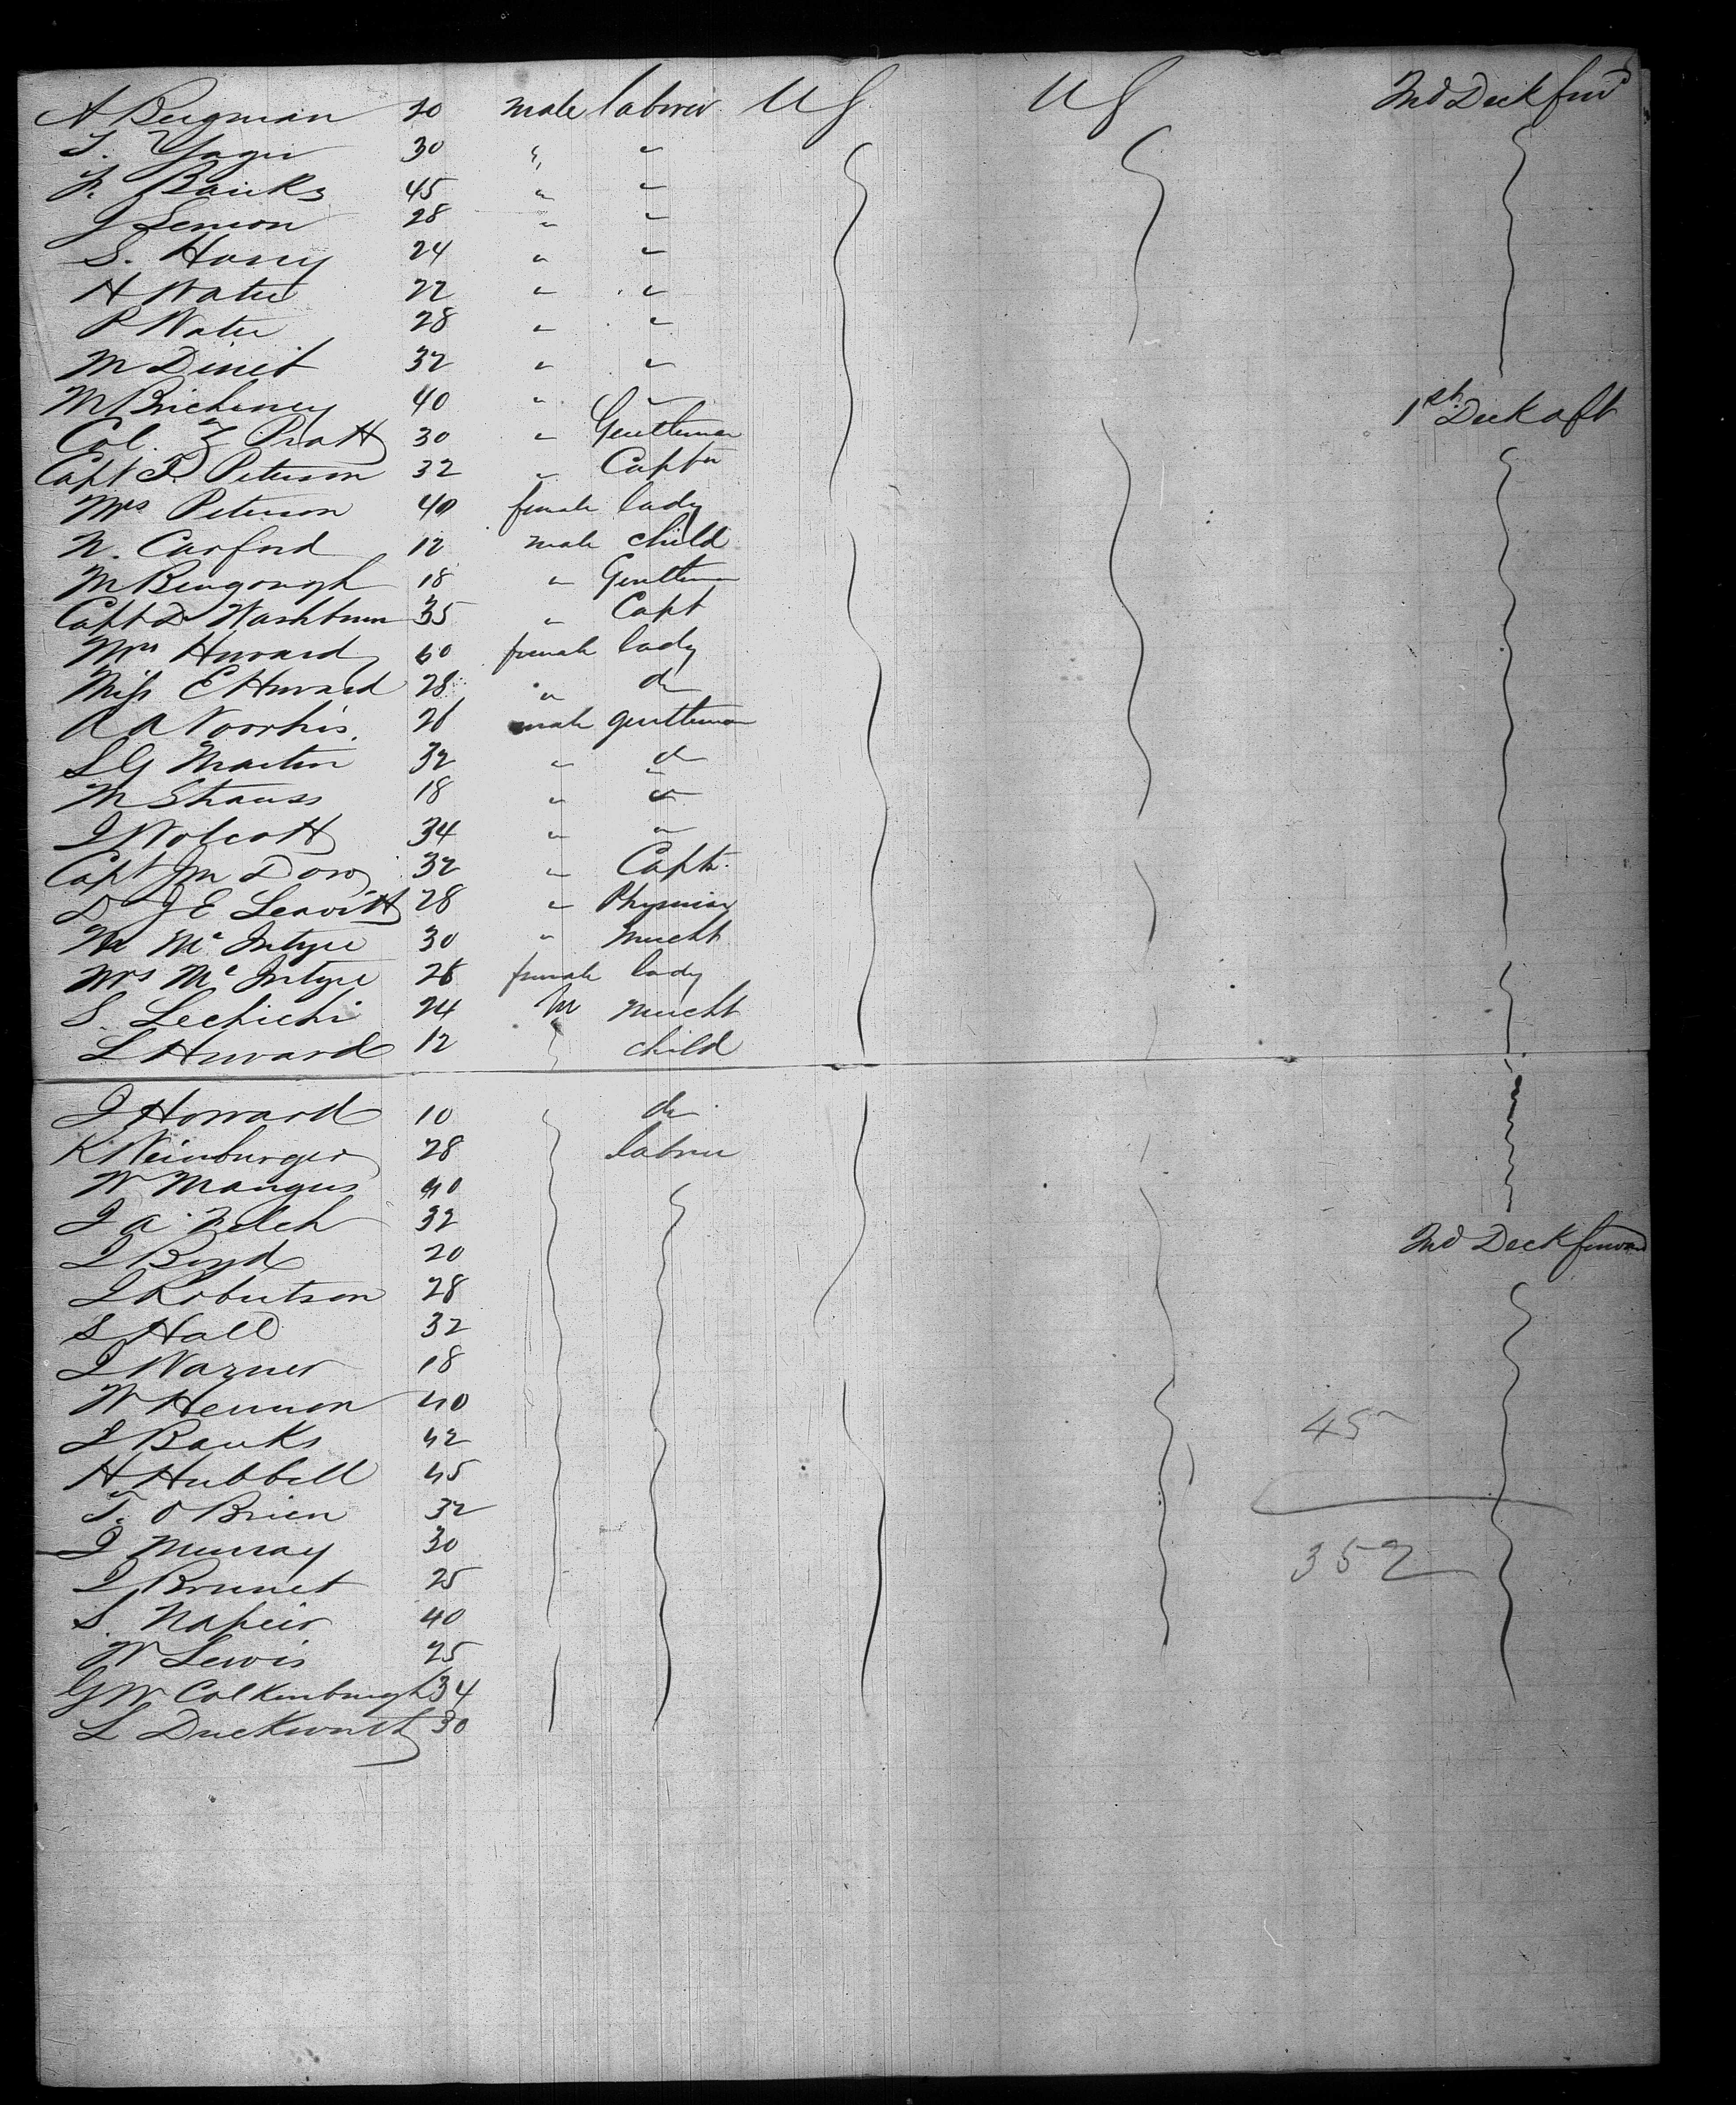 A Bergman 20 male laborer US US 2nd Deck forwd
T. Yager 30 " "
F. Banks 45 " "
J Lemon 28 " "
S. Harry 24 " "
H Water 22 " "
P Water 28 " "
M Dinet 32 " "
M Bricheney 40 " " 1st Deck aft
Col. Z Pratt 30 " Gentleman
Capt T. Peterson 32 " Captn
Mrs Peterson 40 female lady
N. Carford 12 male child
M Bengough 18 " Gentleman
Capt D Washburn 35 " Capt
Mrs Howard 60 female lady
Miss E Howard 28 " do
A A Voorhis. 26 male gentleman
S G Martin 32 " do
M Strauss 18 " "
J Wolcott 34 " "
Capt Jm Dow 32 " Captn.
D J E Leavitt 28 " Physician
Mr Mc Intyre 30 " Mercht
Mrs Mc Intyre 28 female lady
S. Lechichi 24 M mercht
L Howard 12 child
J Howard 10 do
K Weinburger 28 laborer
W Mangus 40
J A Welch 32 2nd Deck forward
J Boyd 20
J Robertson 28
S Hall 32
J Warner 18
W Hennon 40
J Banks 42 45
H Hubbell 45
T. O Brien 32
J Murray 30 352
J Brunet 25
S. Napeir 40
W Lewis 25
G W Calkinburgh 34
L Duckworth 30